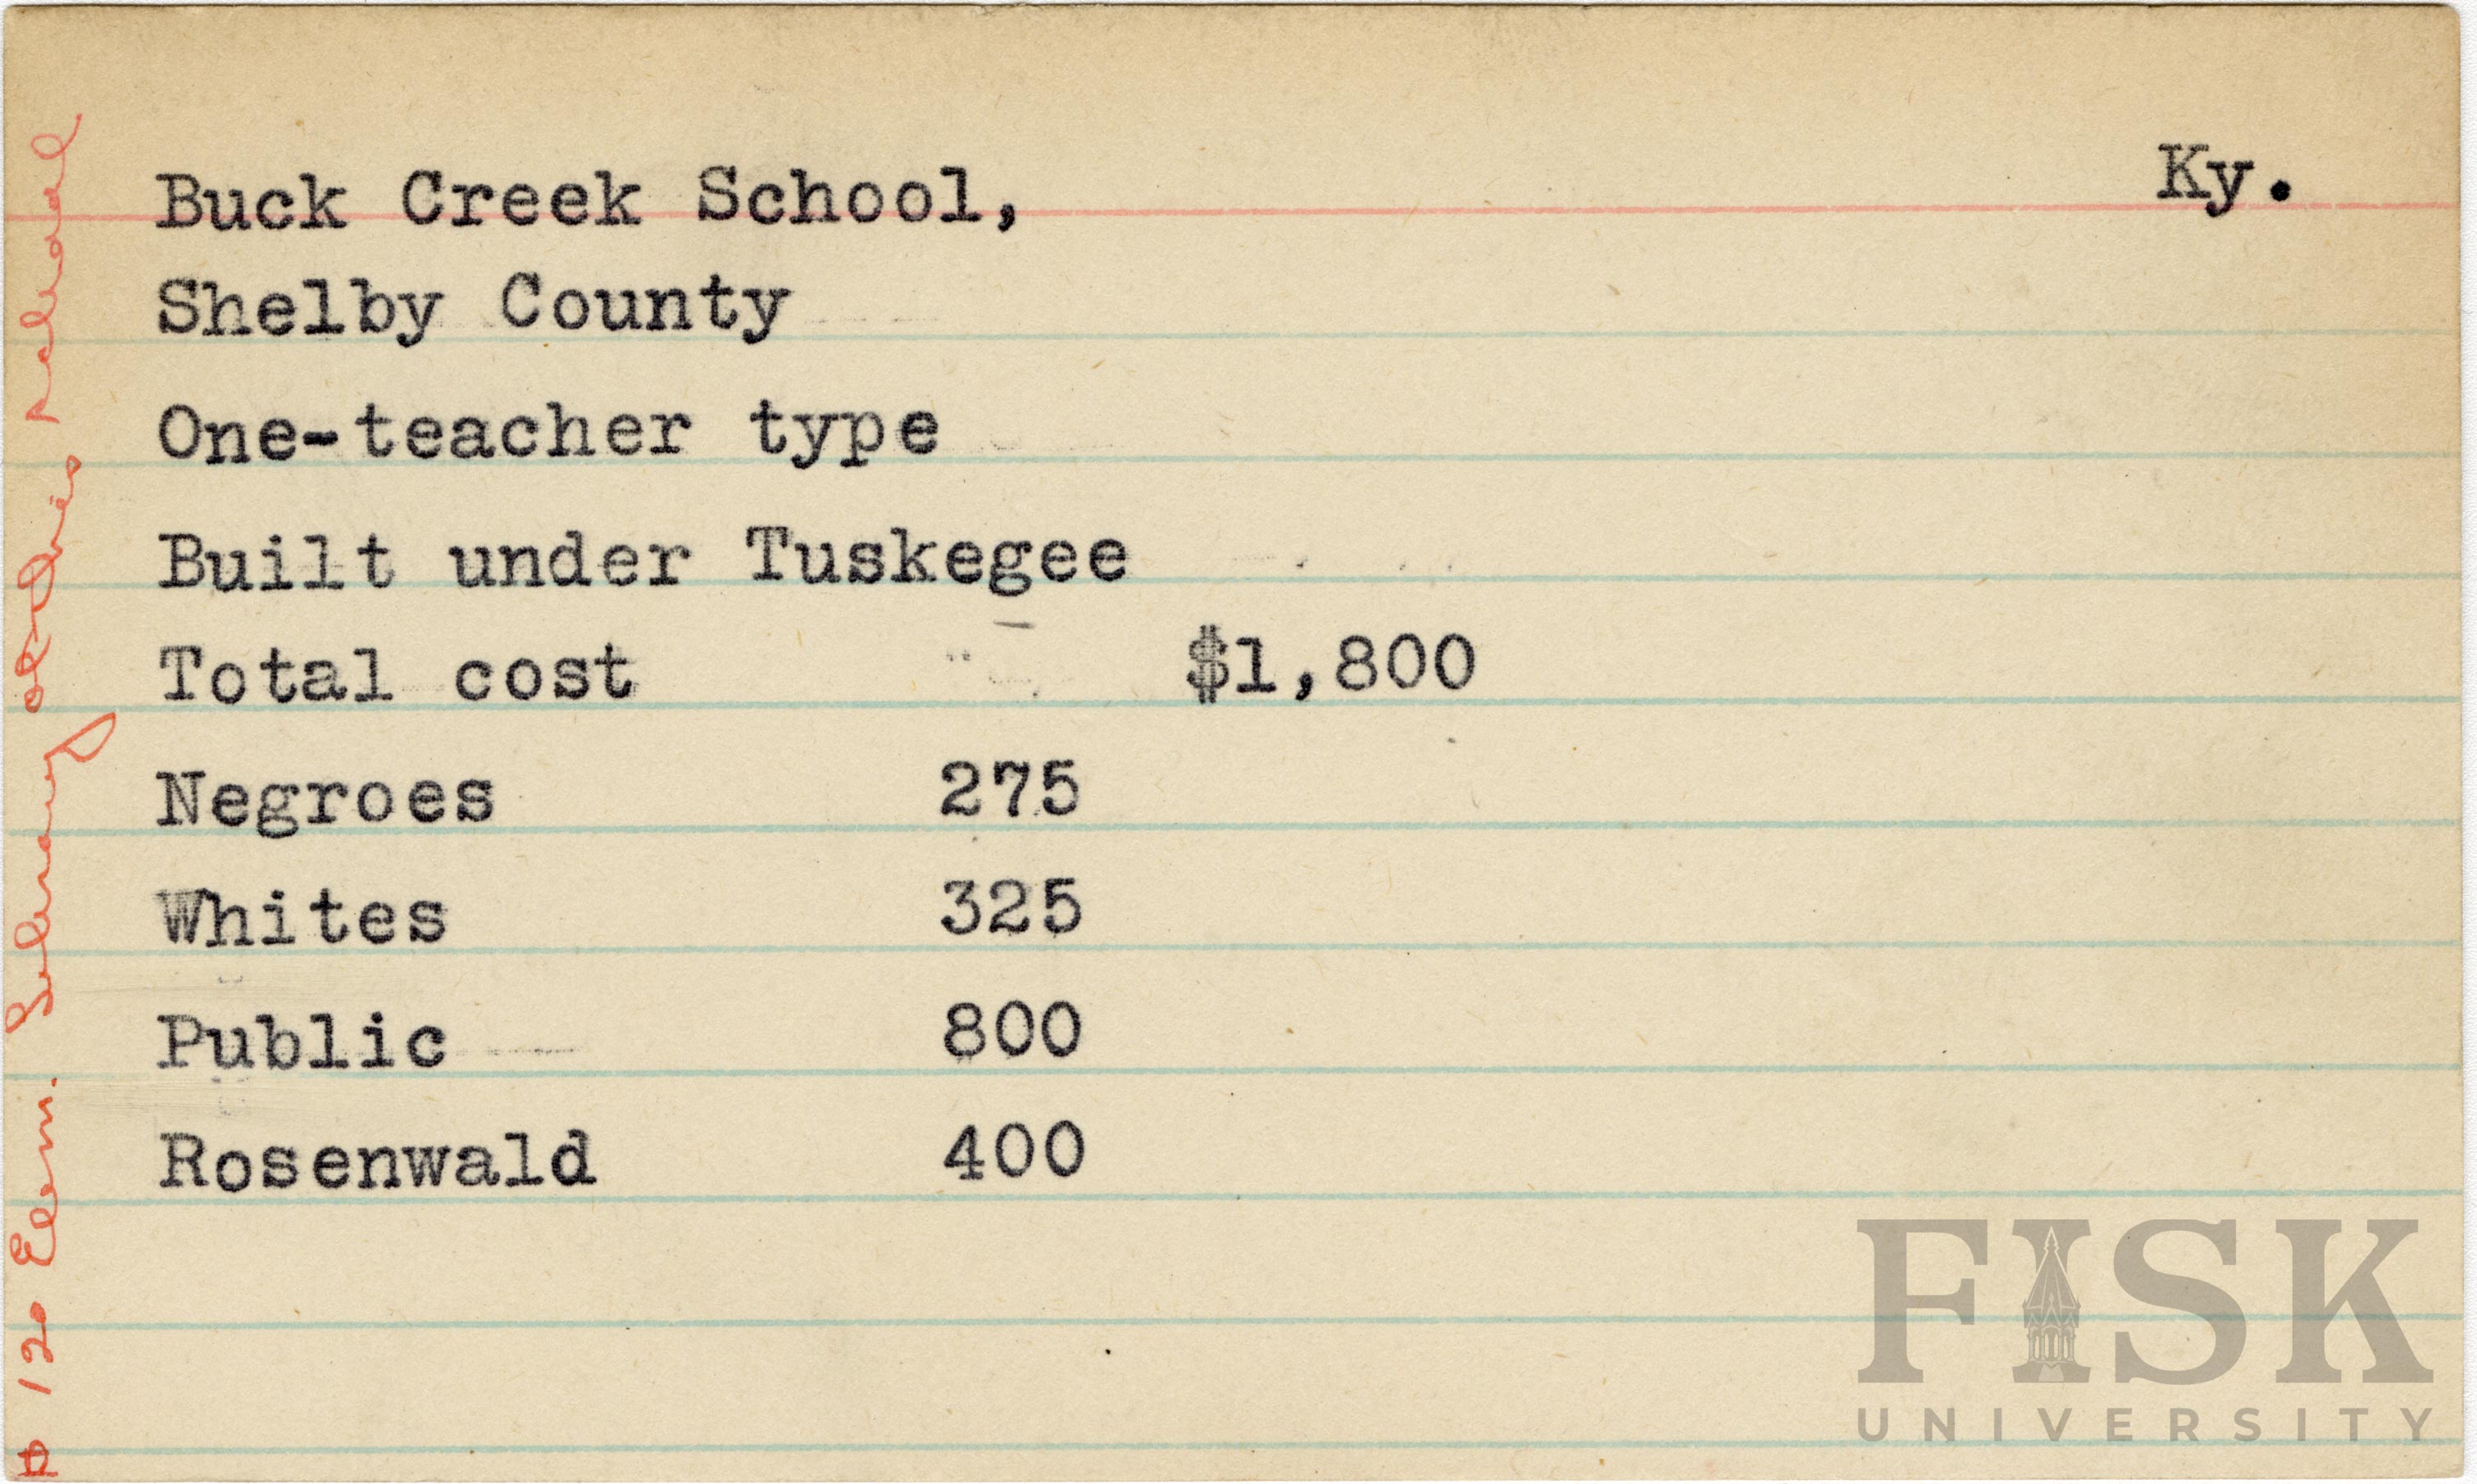 Buck Creek School, Ky.
Shelby County
One-teacher type
Built under Tuskegee
Total cost $1,800
Negroes 275
Whites 325
Public 800
Rosenwald 400
120 Elem. Library at this school
FISK
UNIVERSITY